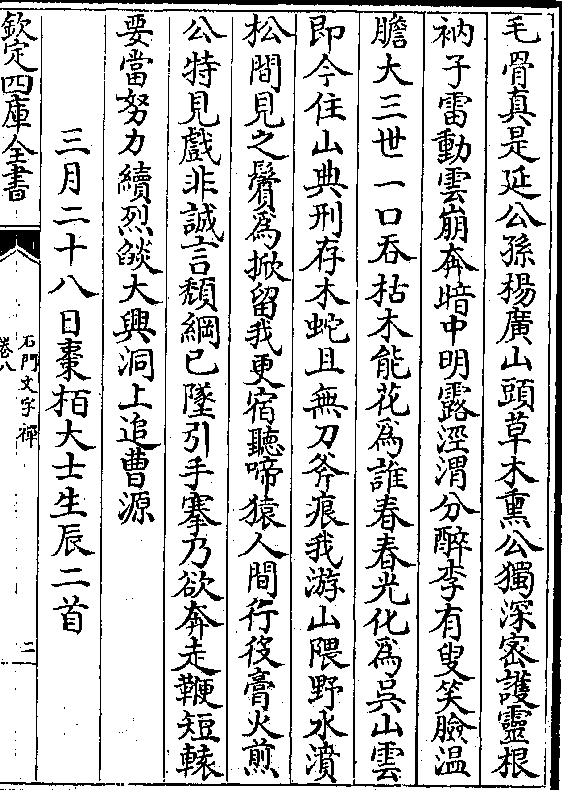 毛骨真是延公孫楊廣山頭草木熏公獨深密護靈根
衲子雷動雲崩奔暗中明露涇渭分醉李有叟笑臉温
膽大三世一口吞枯木能花為誰春春光化為吳山雲
即今住山典刑存木蛇且無刀斧痕我游山隈野水濆
松間見之鬢為掀留我更宿聽啼猿人間行役膏火煎
公特見戲非誠言頽綱已墜引手搴乃欲奔走鞭短轅
要當努力續烈燄大興洞上追曹源
三月二十八日棗栢大士生辰二首
欽定四庫全書
石門文字禪
卷八
二